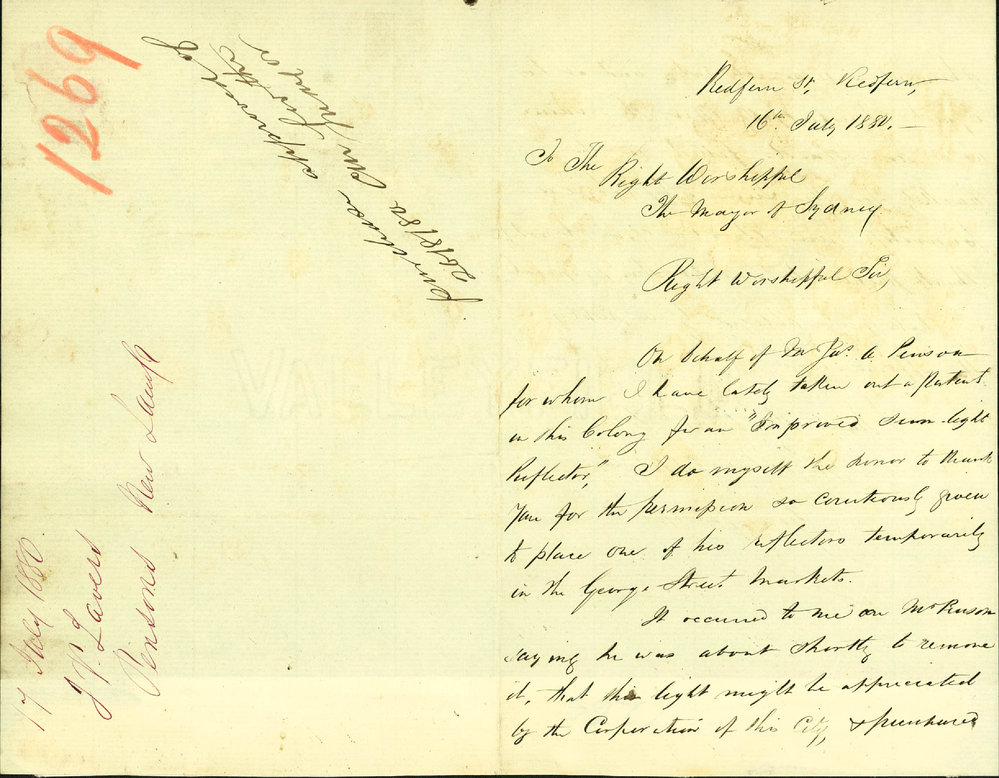 1269
purchase approved of
Cm for the
26/8/80
17 July 1880.
J. P. Lavers
Pensons New Lamp
Redfern St, Redfern,
16th July 1880.—
To The
Right Worshipful
The Mayor of Sydney
Right Worshipful Sir,
On behalf of Mr Jas. A. Penson
for whom I have lately taken out a patent
in this Colony for an "Improved Sun-light
Reflector", I do myself the honor to thank
you for the permission so courteously given
to place one of his reflectors temporarily
in the George Street Markets.
It occurred to me on Mr Penson
saying he was about shortly to remove
it, that this light might be appreciated
by the Corporation of this City, & purchased